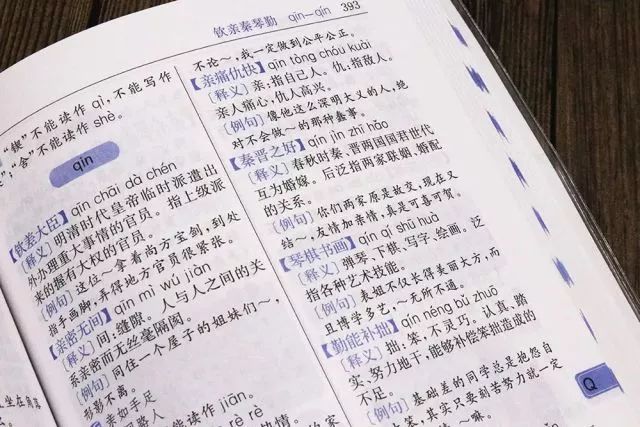 钦亲秦琴勤 qīn—qín 393
“锲”不能读作 qì, 不能写作
“舍”不能读作 shè。
qīn
【钦差大臣】qīn chāi dà chén
〔释义〕明清时代皇帝临时派遣出
外办理重大事情的官员。指上级派
来的握有大权的官员。
〔例句〕这位～拿着尚方宝剑,到处
指手画脚,弄得地方官员很紧张。
【亲密无间】qīn mì wú jiàn
〔释义〕间:缝隙。人与人之间的关
系亲密而无丝毫隔阂。
〔例句〕同住一个屋子的姐妹们～,
形影不离。
亲如手足
能读作 jiān。
rè rè
热情。
不论～,我一定做到公平公正。
【亲痛仇快】qīn tòng chóu kuài
〔释义〕亲:指自己人。仇:指敌人。
亲人痛心,仇人高兴。
〔例句〕像他这么深明大义的人,绝
对不会做～的那种蠢事。
【秦晋之好】qín jìn zhī hǎo
〔释义〕春秋时秦、晋两国国君世代
互为婚嫁。后泛指两家联姻、婚配
的关系。
〔例句〕你们两家原是故交,现在又
结～,友情加亲情,真是可喜可贺。
【琴棋书画】qín qí shū huà
〔释义〕弹琴、下棋、写字、绘画。泛
指各种艺术技能。
〔例句〕表姐不仅长得美丽大方,而
且博学多艺,～无所不通。
【勤能补拙】qín néng bǔ zhuō
〔释义〕拙:笨,不灵巧。认真、踏
实、努力地干,能够补偿笨拙造成的
不足。
〔例句〕基础差的同学总是抱怨自
太笨,其实只要刻苦努力就一定
～嘛。
Q